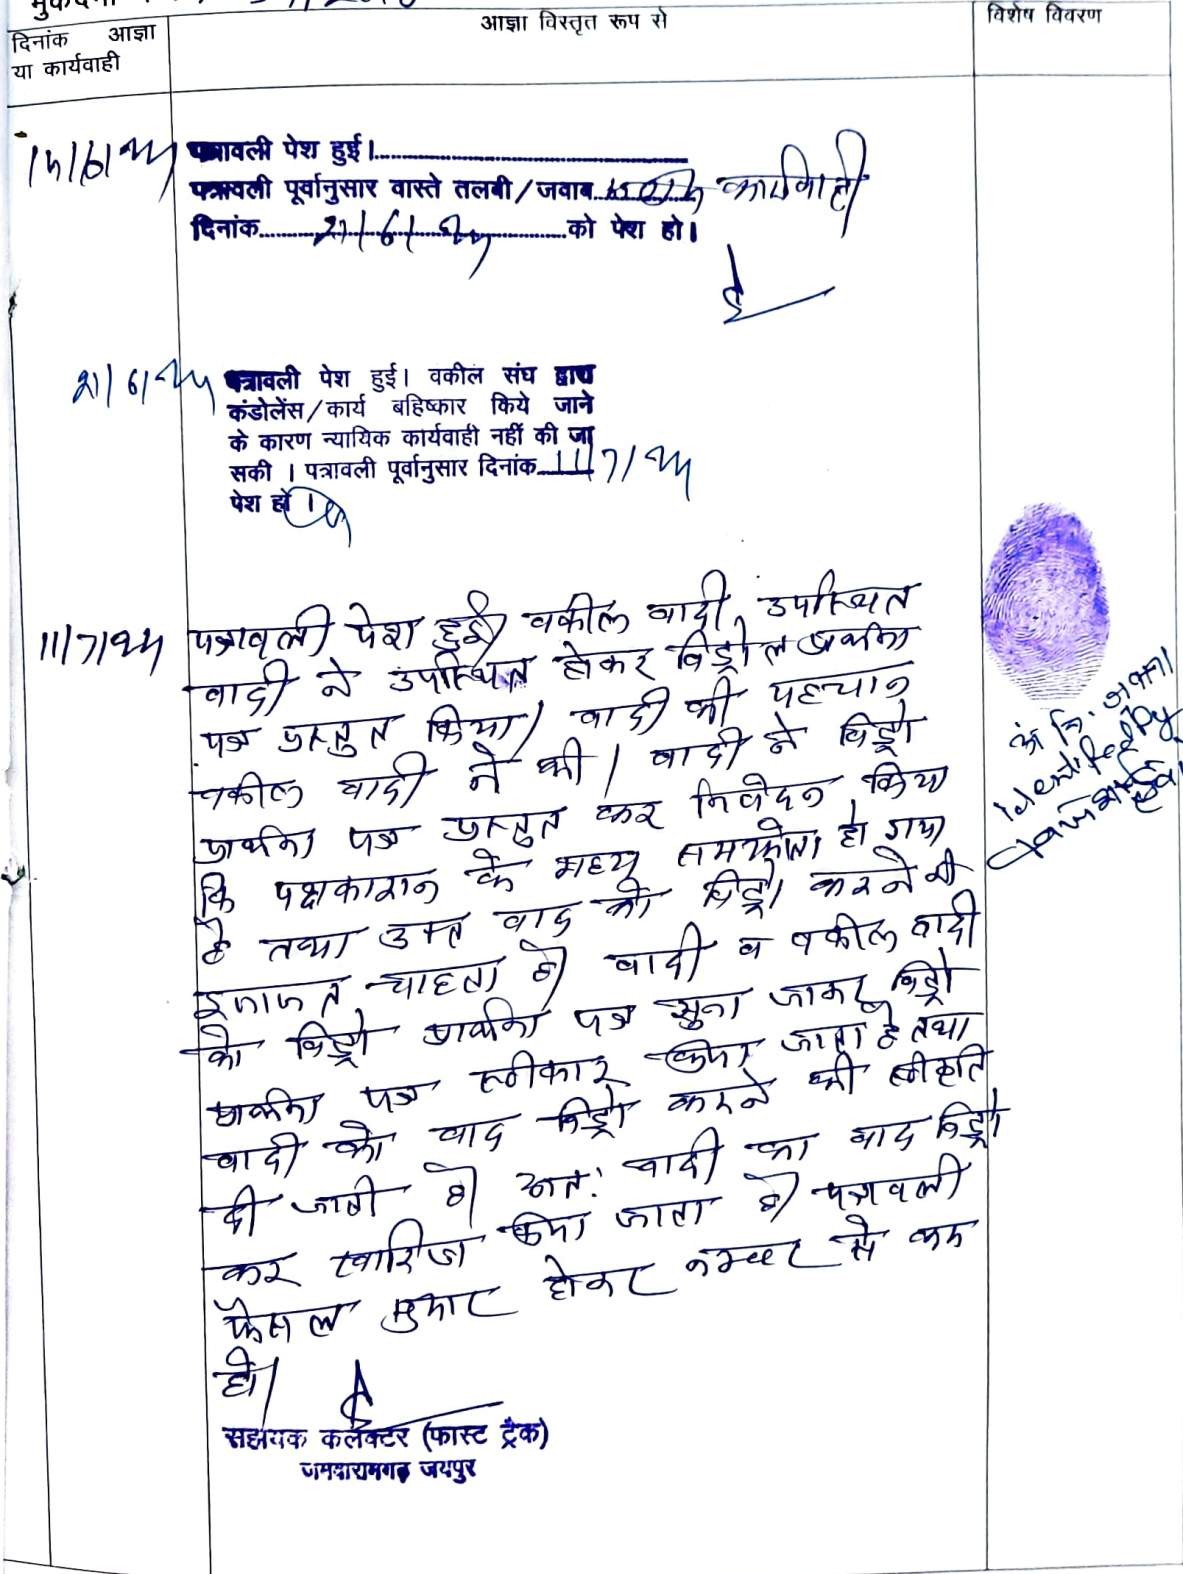 दिनांक आज्ञा
या कार्यवाही
आज्ञा विस्तृत रूप से
विशेष विवरण
पत्रावली पेश हुई।
पत्रावली पूर्वानुसार वास्ते तलबी/जवाब कार्यवाही
दिनांक 21/6/24 को पेश हो।
21/6/24
पत्रावली पेश हुई। वकील संघ द्वारा
कंडोलेंस/कार्य बहिष्कार किये जाने
के कारण न्यायिक कार्यवाही नहीं की जा
सकी । पत्रावली पूर्वानुसार दिनांक 11/7/24
पेश हो ।
11/7/24
पत्रावली पेश हुई। वकील वादी उपस्थित
वादी ने उपस्थित होकर विड्रोल प्रार्थना
पत्र प्रस्तुत किया। वादी की पहचान
वकील वादी ने की। वादी ने विड्रो
प्रार्थना पत्र प्रस्तुत कर निवेदन किया
कि पक्षकारान के मध्य समझौता हो गया
है तथा उक्त वाद को विड्रो करने की
इजाजत चाहता है। वादी व वकील वादी
को विड्रो प्रार्थना पत्र सुना जाकर विड्रो
प्रार्थना पत्र स्वीकार किया जाता है तथा
वादी को वाद विड्रो करने की स्वीकृति
दी जाती है। अत: वादी का वाद विड्रो
कर खारिज किया जाता है। पत्रावली
फैसल शुमार होकर नम्बर से कम
हो।
सहायक कलेक्टर (फास्ट ट्रैक)
जमवारामगढ़ जयपुर
Identified by